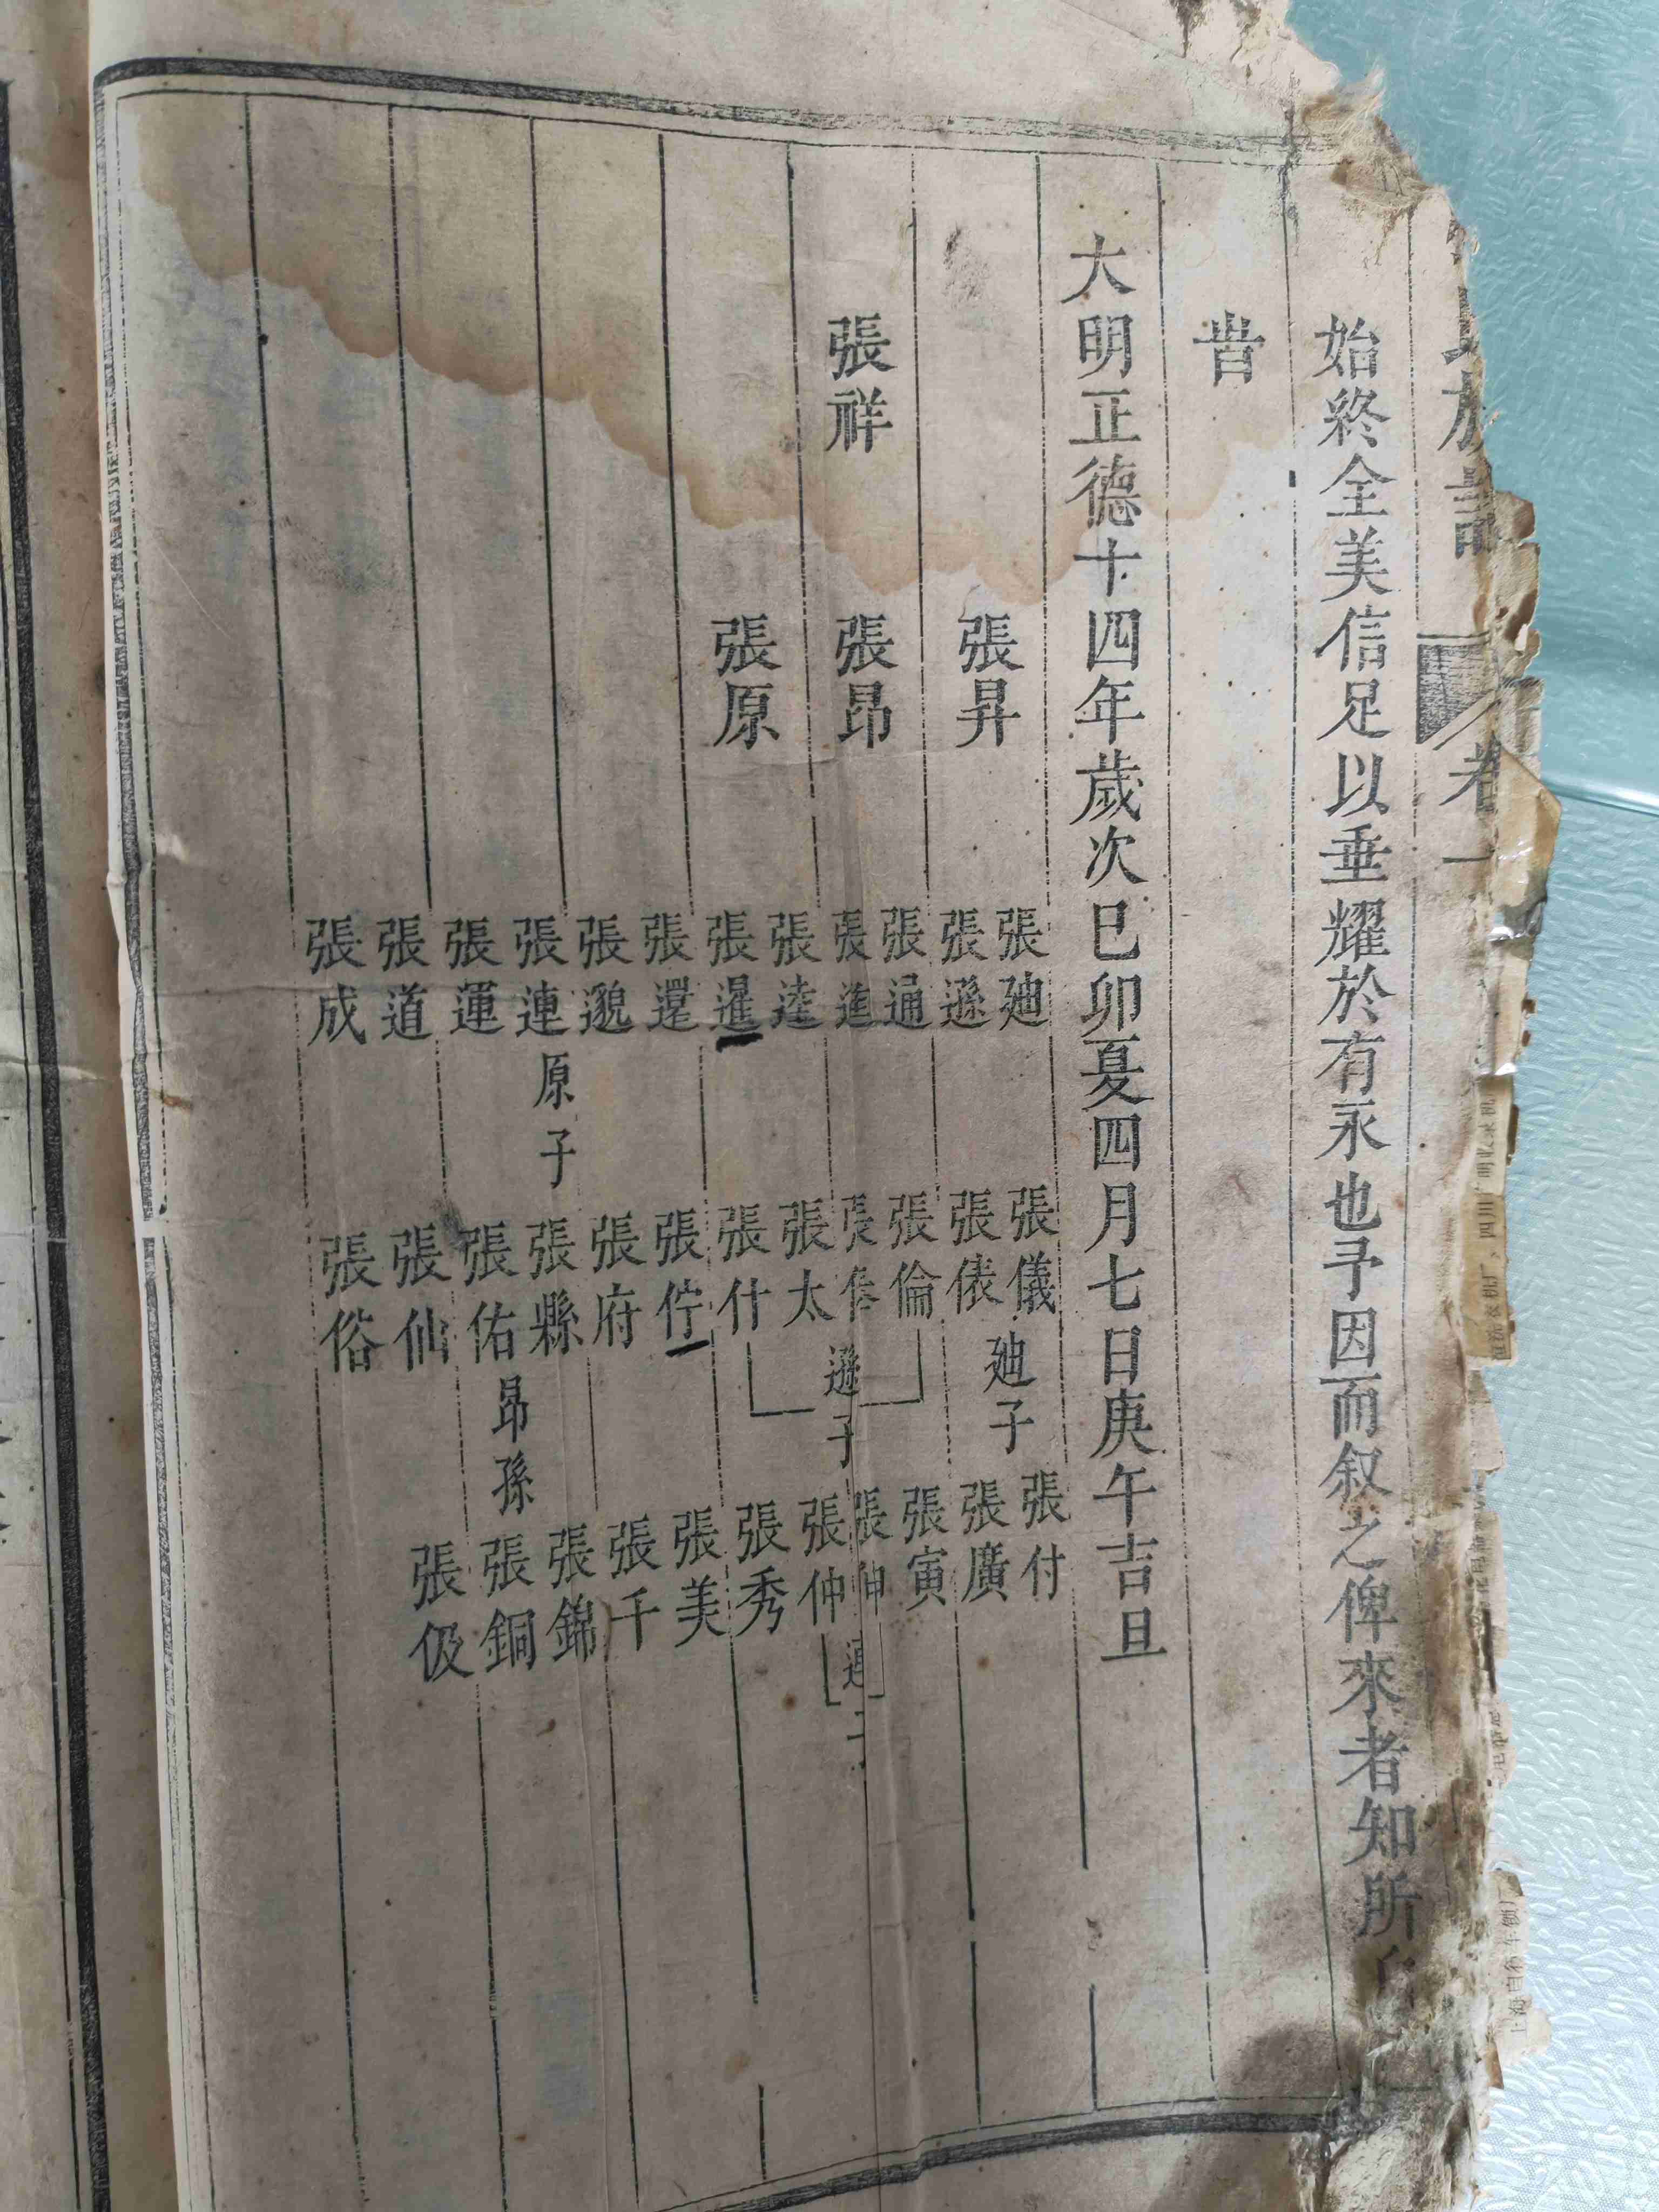 族
卷一
始終全美信足以垂耀於有永也予因而叙之俾來者知所
旹
大明正德十四年歲次巳卯夏四月七日庚午吉旦
張祥
張昇
張昂
張原
張廸
張遜
張通
張進
張逵
張暹
張還
張邈
張連
原子
張運
張道
張成
張儀
張俵
廸子
張倫
張
張太
張什
遜子
張佇
張府
張縣
張佑
昂孫
張仙
張俗
張付
張廣
張寅
張伸
張仲
張秀
張美
張千
張錦
張銅
張伋